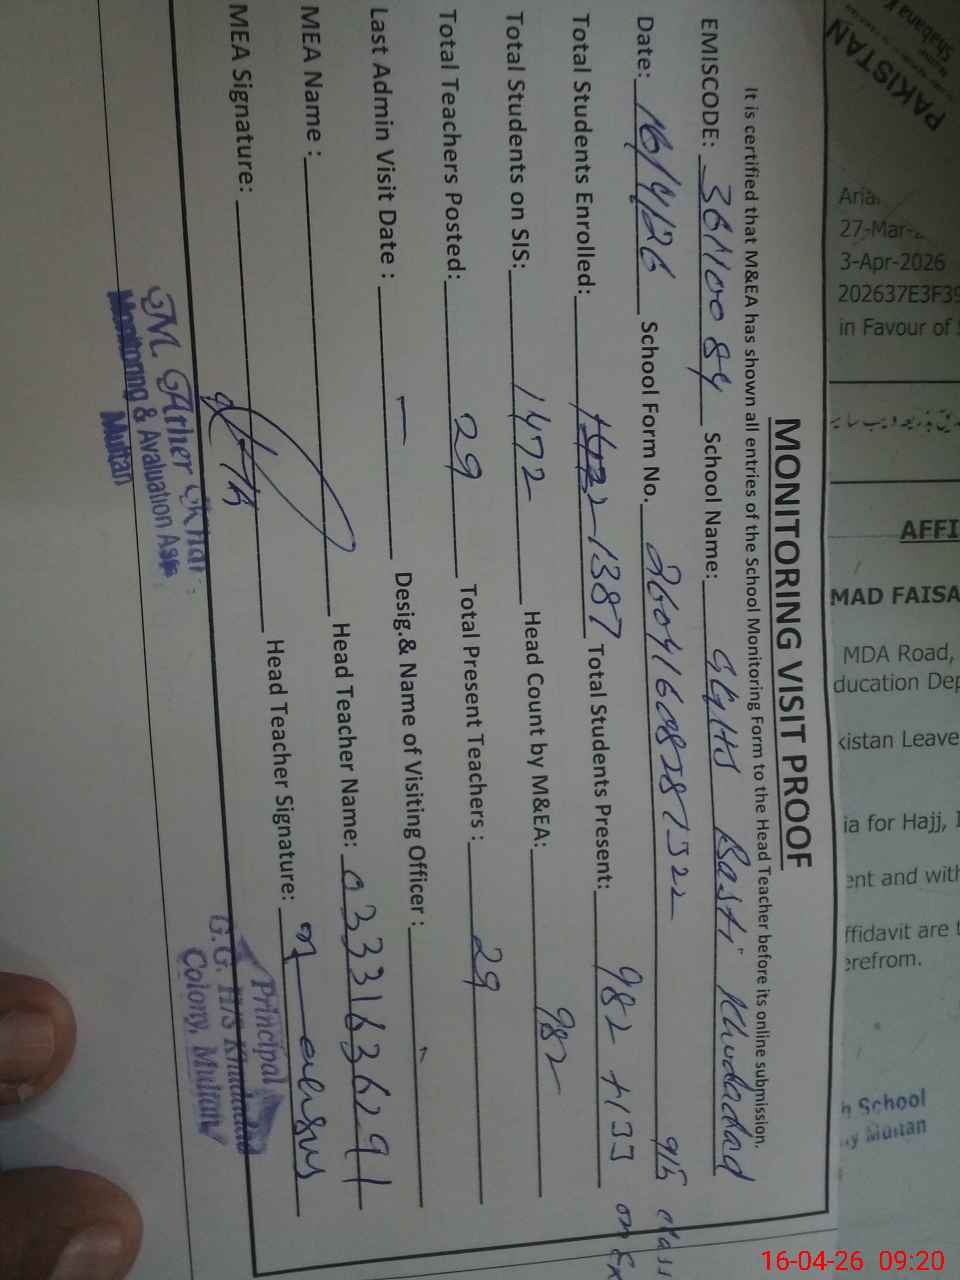 MONITORING VISIT PROOF
It is certified that M&EA has shown all entries of the School Monitoring Form to the Head Teacher before its online submission.
EMISCODE: 36110084 School Name: GGHS Basti Khudadad
Date: 16/4/26 School Form No. 26041608287322
9th class
Total Students Enrolled: 1387 Total Students Present: 982 + 133 on
Total Students on SIS: 1472 Head Count by M&EA: 982
Total Teachers Posted: 29 Total Present Teachers : 29
Last Admin Visit Date : — Desig.& Name of Visiting Officer :
MEA Name : Head Teacher Name: 0331636291
MEA Signature: Head Teacher Signature:
M. Ather
Monitoring & Avaluation Ass
Multan
Principal
G.G. H/S
Colony, Multan
PAKISTAN
Shabana
27-Mar-
3-Apr-2026
202637E3F39
in Favour of
AFFI
MAD FAISA
MDA Road,
ducation Dep
kistan Leave
ia for Hajj,
ent and with
ffidavit are t
erefrom.
h School
Multan
16-04-26 09:20